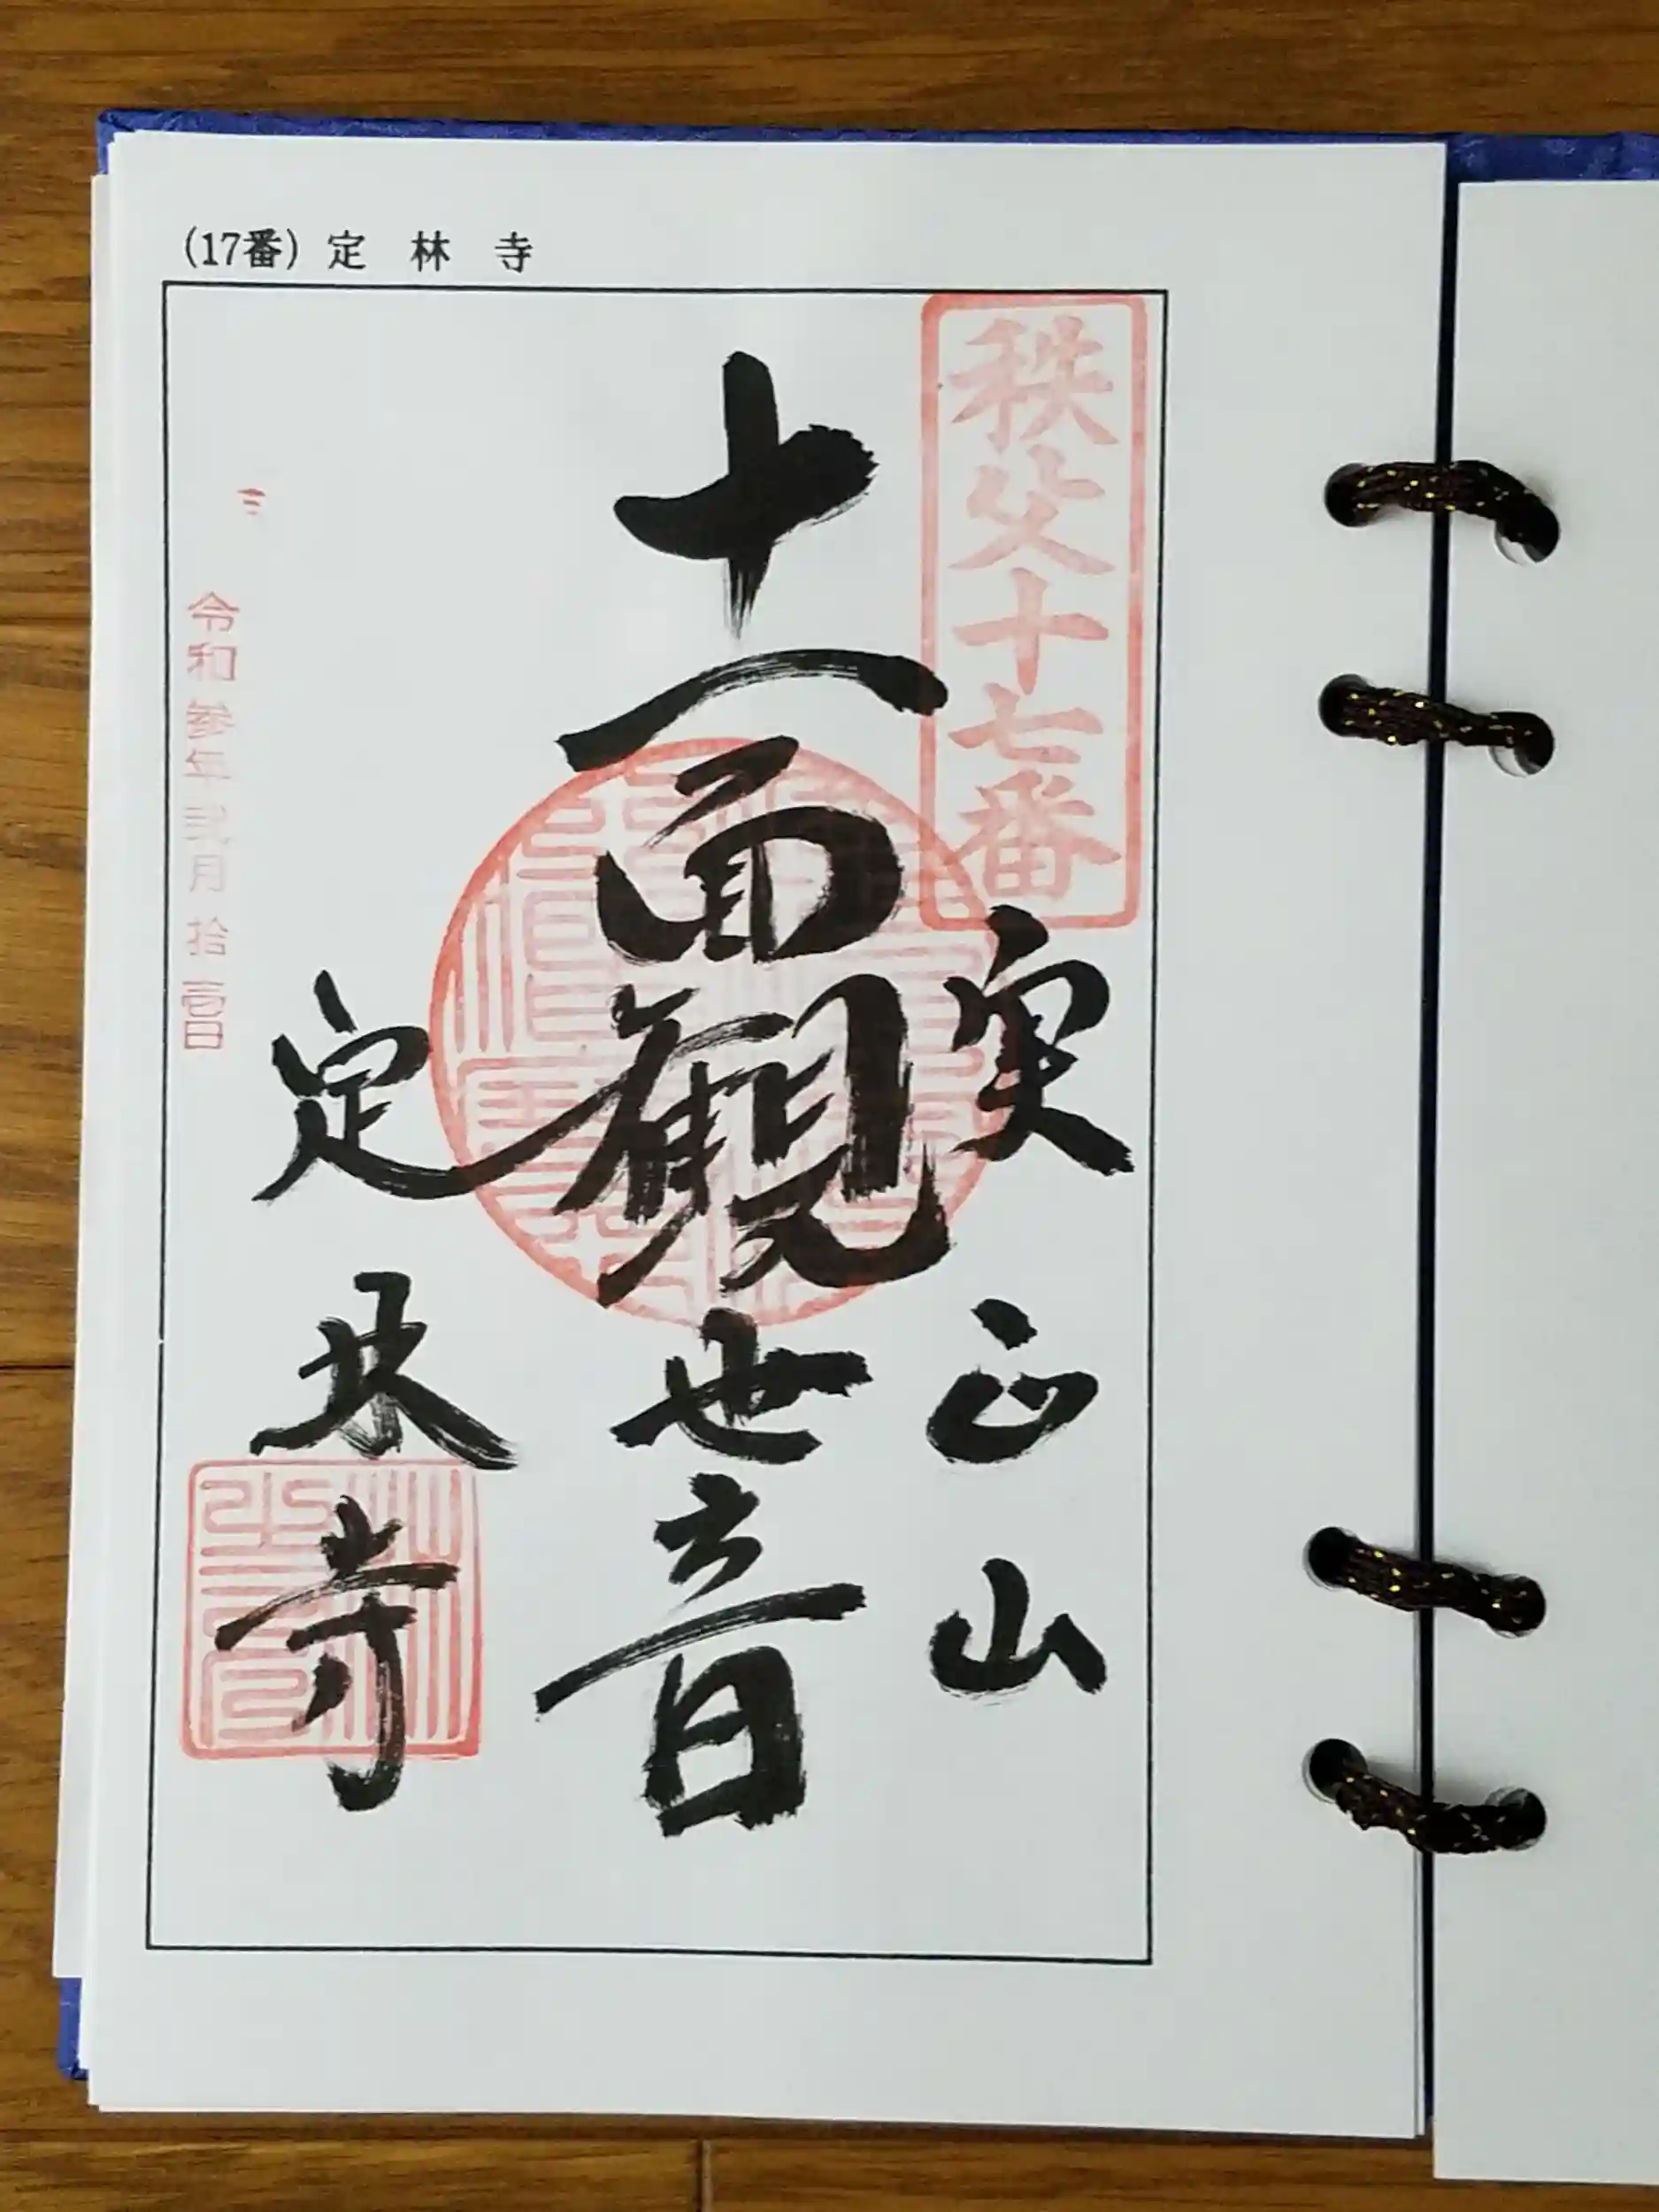 (17番) 定 林 寺
秩父十七番
実正山
十一面観世音
定林寺
令和参年弐月拾壱日